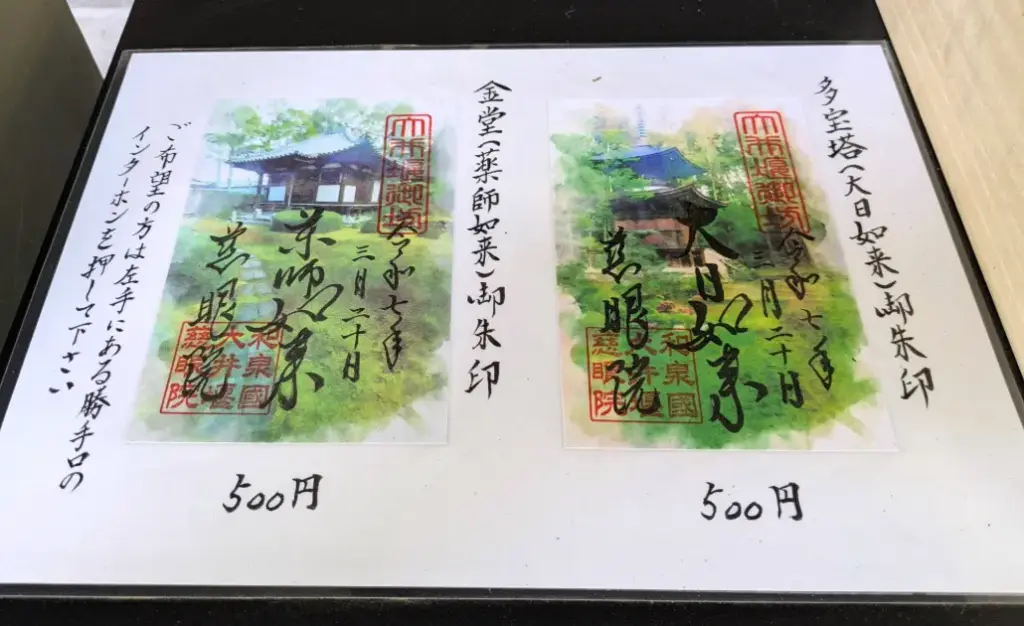 多宝塔（大日如来）御朱印
令和七年
三月二十日
大日如来
慈眼院
和泉國
大井堰
慈眼院
500円
金堂（薬師如来）御朱印
令和七年
三月二十日
薬師如来
慈眼院
和泉國
大井堰
慈眼院
500円
ご希望の方は左手にある勝手口の
インターホンを押して下さい